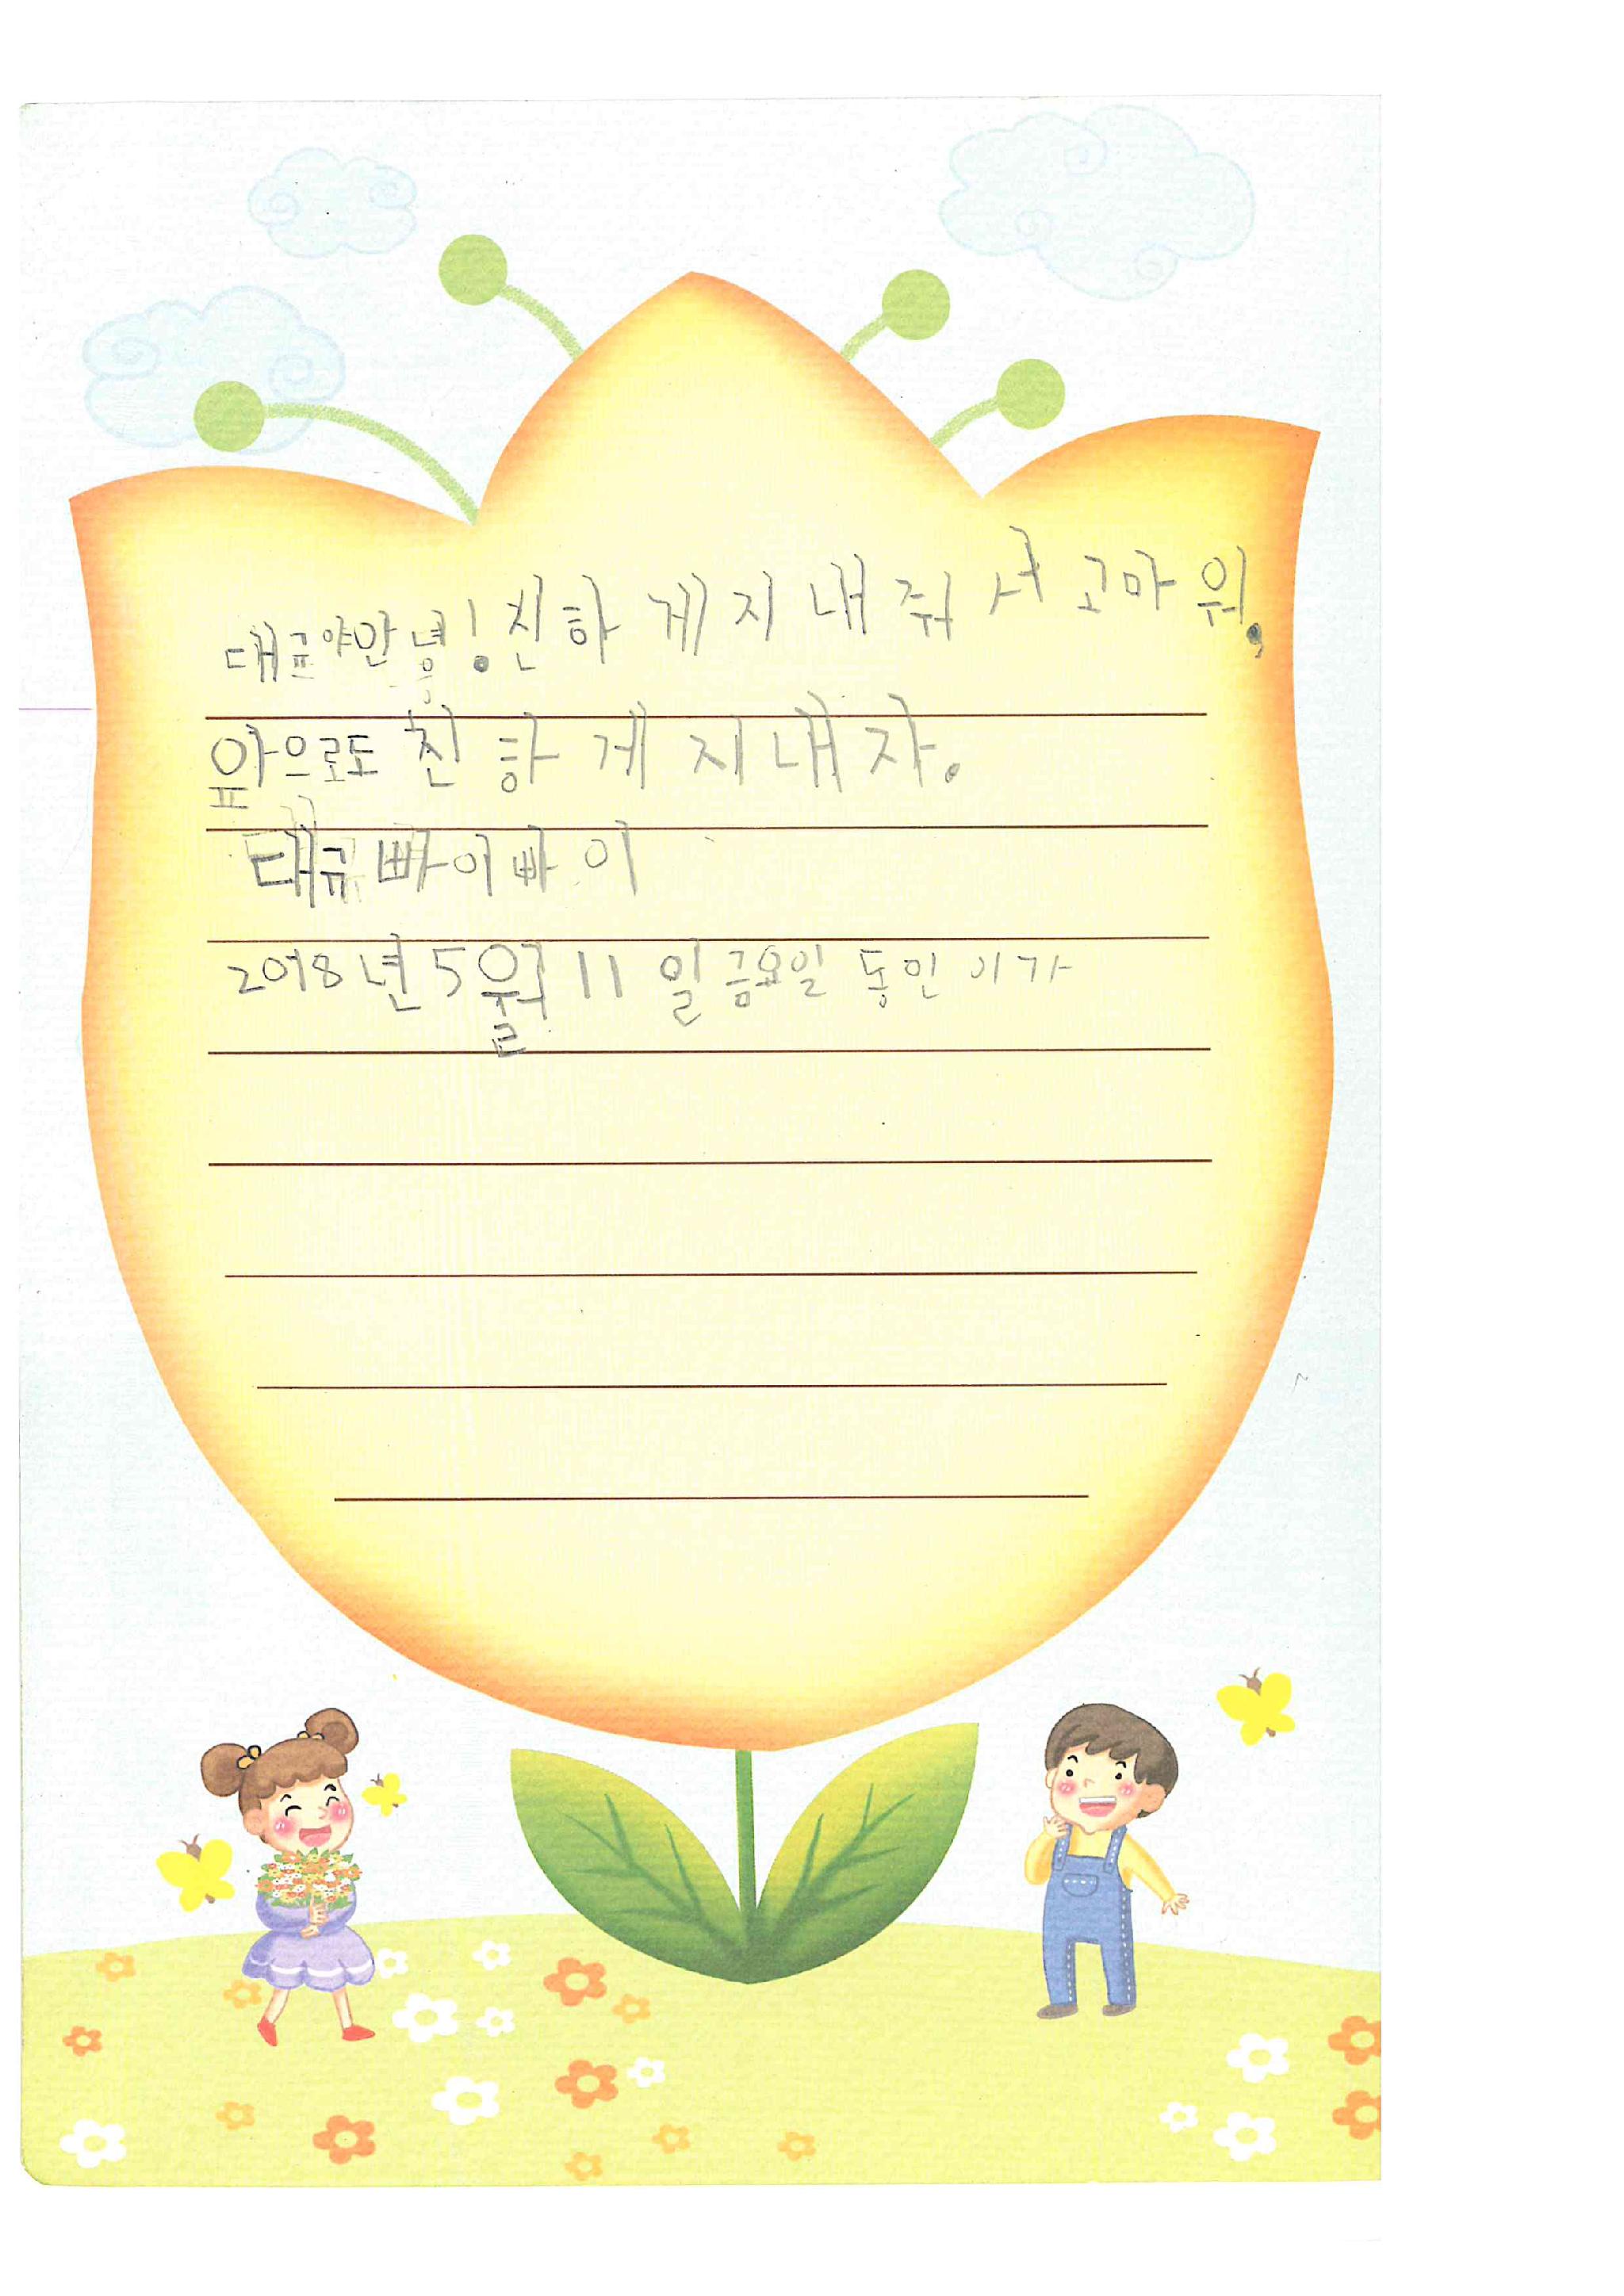 대규야안녕! 친하게지내줘서고마워,
앞으로도 친하게지내자.
대규빠이빠이
2018년5월11일금요일 동인이가